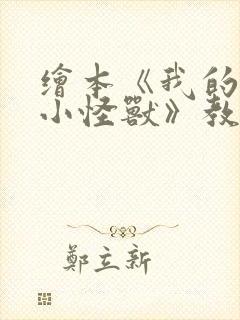 繪本《我的
小怪獸》教
鄭立新